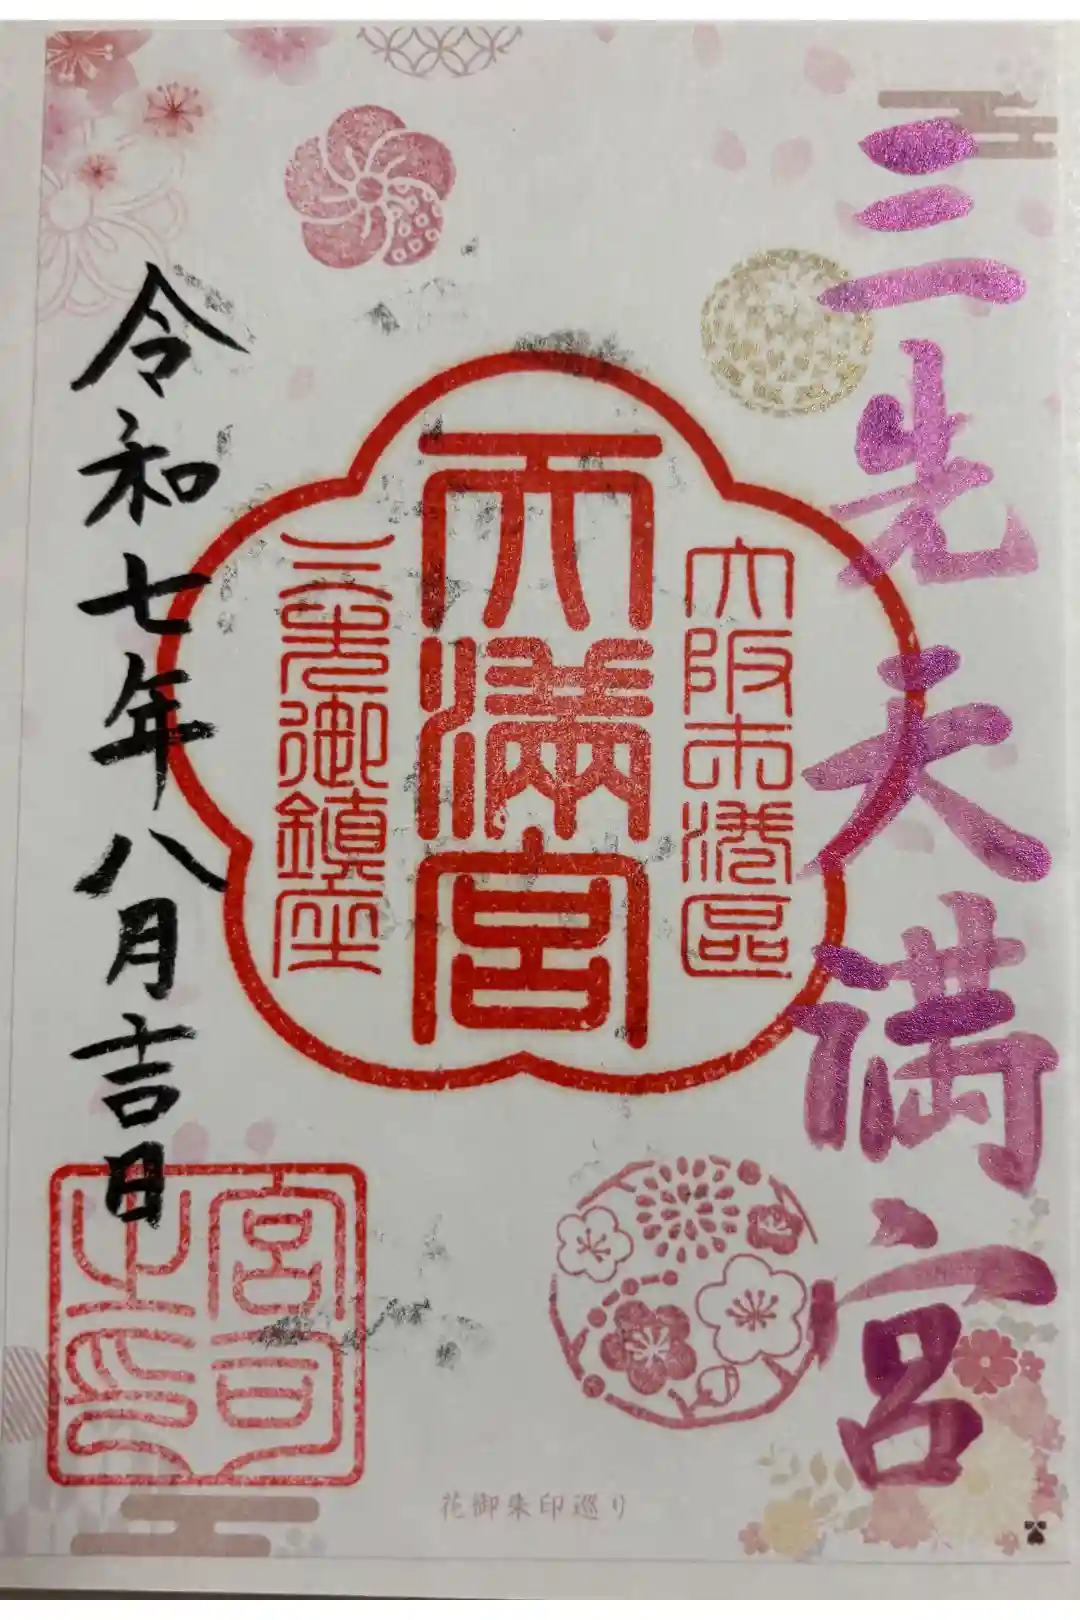 三先天満宮
大阪市港区
天満宮
三先御鎮座
令和七年八月吉日
宮司之印
花御朱印巡り